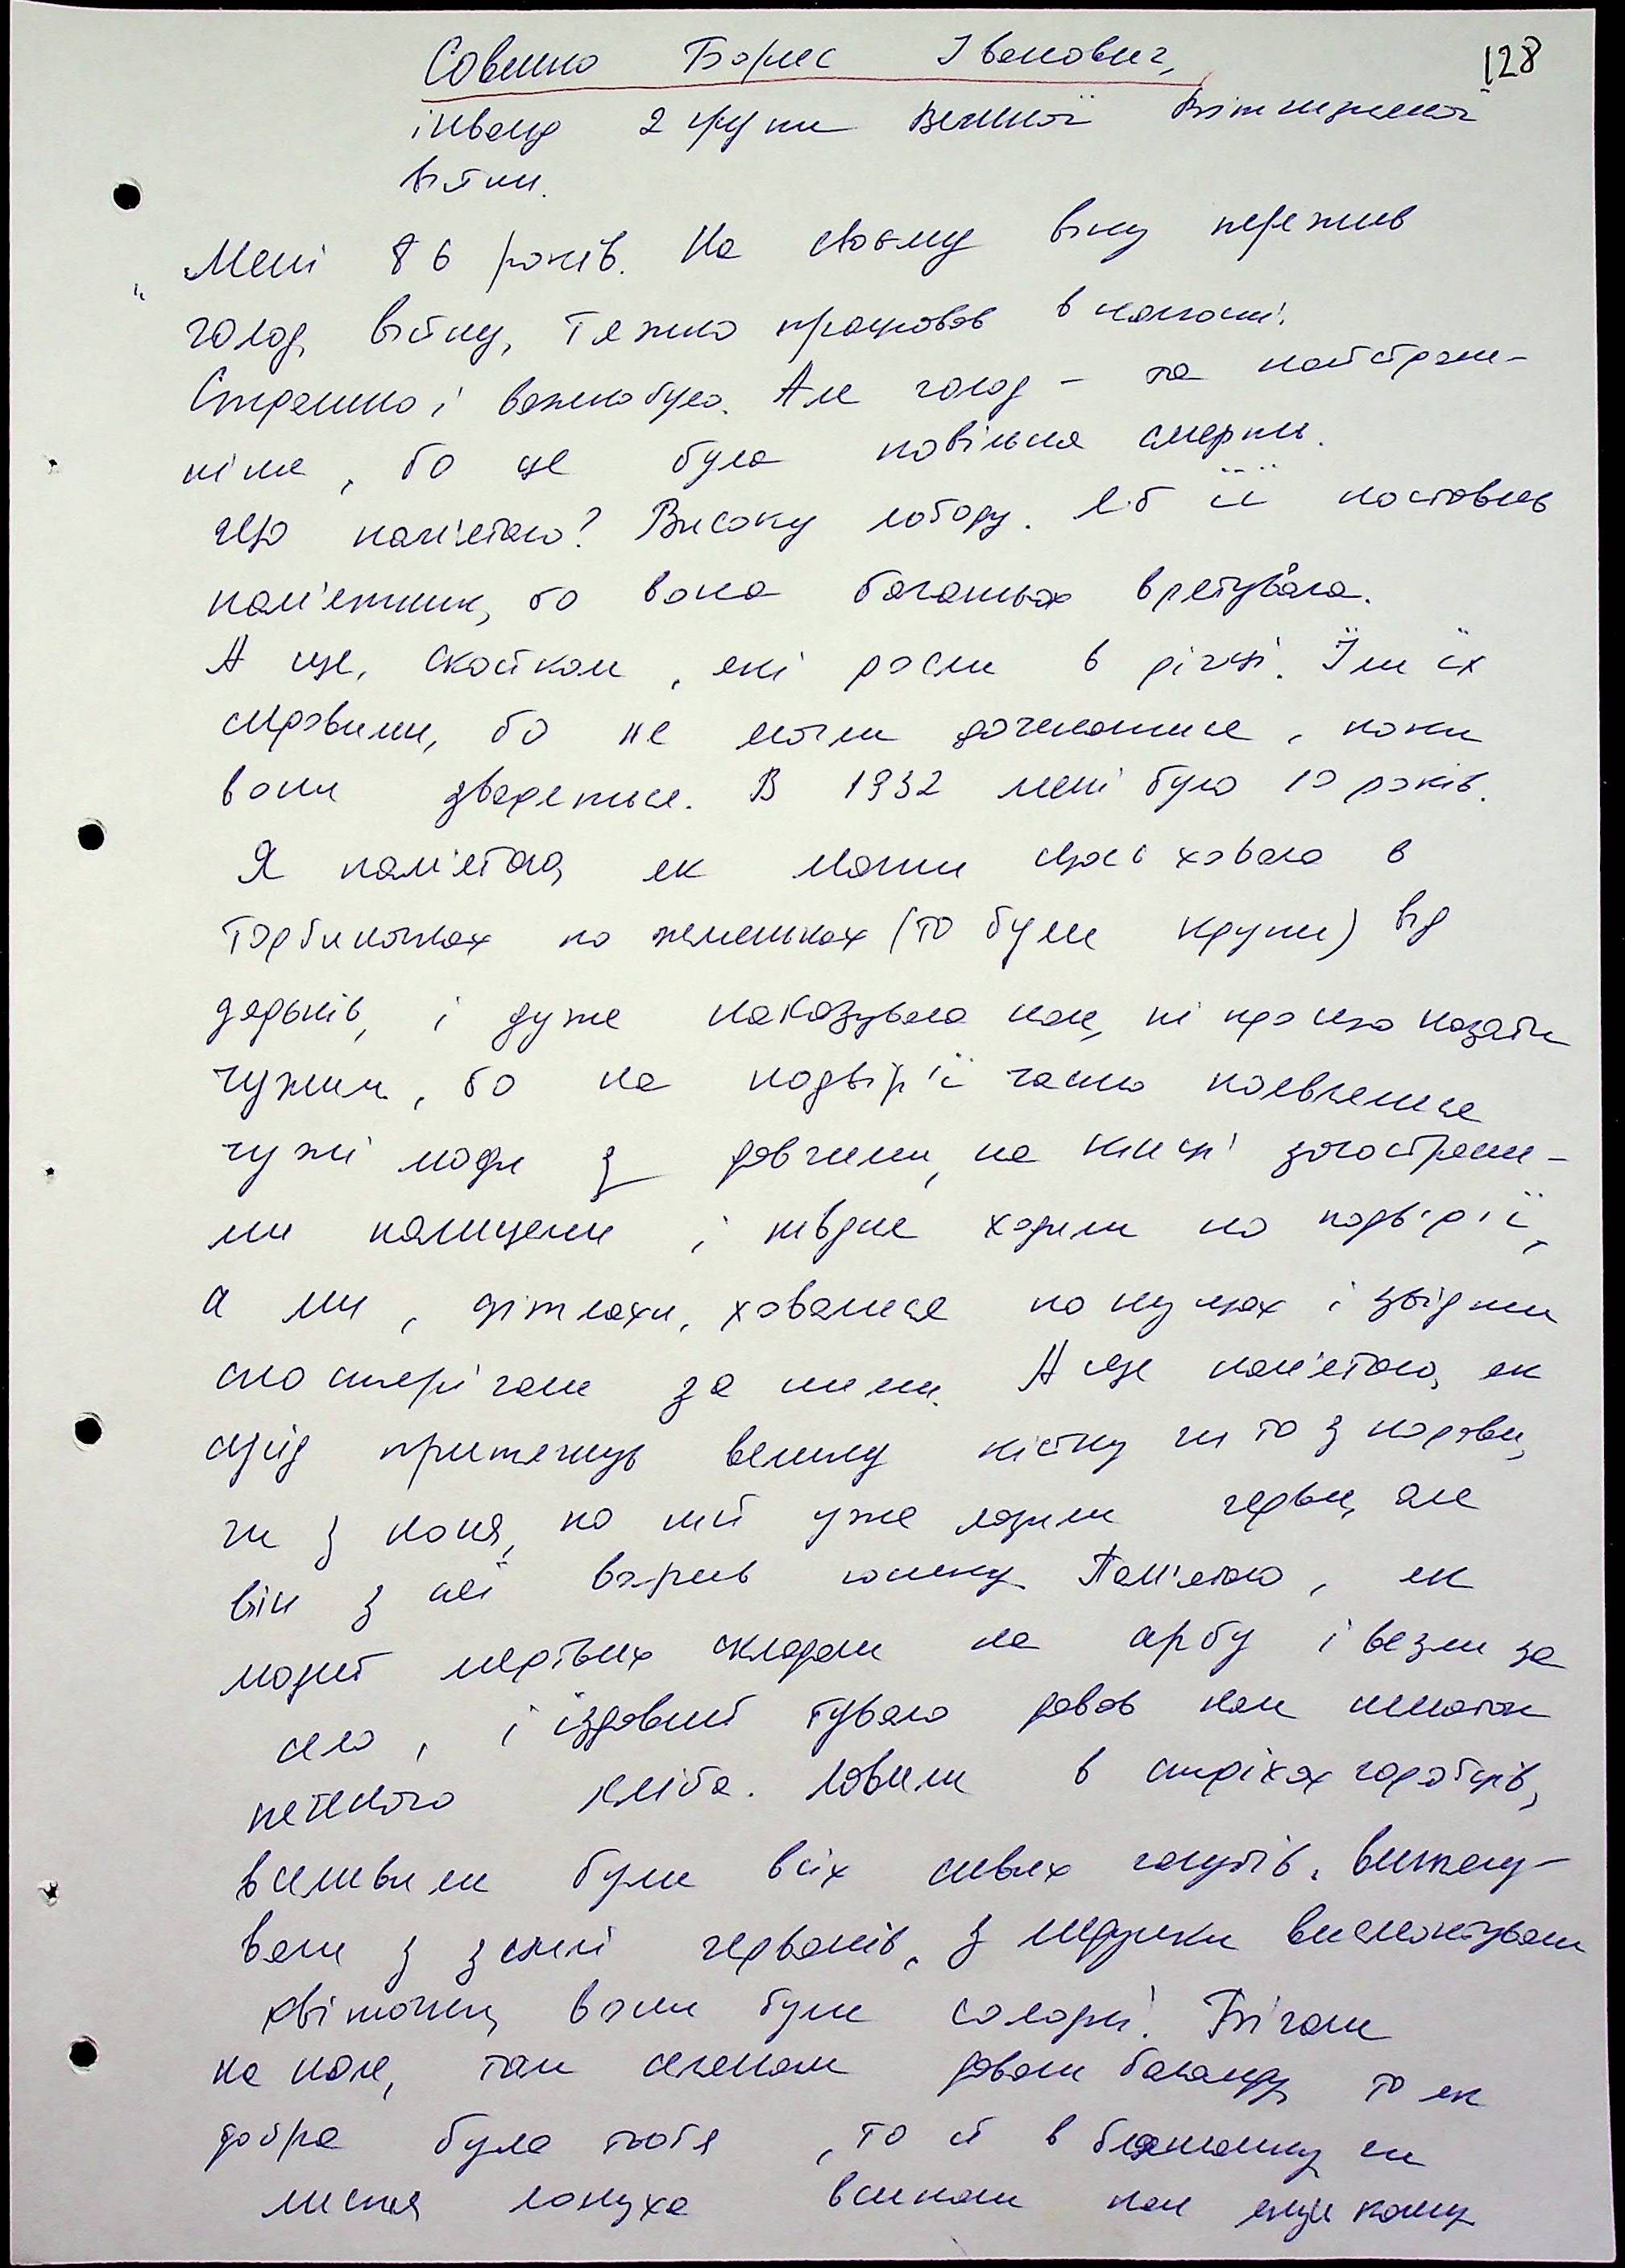 128
Совенко Борис Іванович,
інвалід 2 групи Великої Вітчизняної
війни.
„Мені 86 років. На своєму віку пережив
голод, війну, тяжко працював в колгоспі.
Страшно і важко було. Але голод – та найстраш-
ніше, бо це була повільна смерть.
Що пам'ятаю? Високу лободу. Я б їй поставив
пам'ятник, бо вона багатьох врятувала.
А ще, скойком, які росли в річці. Їли їх
сировими, бо не могли дочекатися, поки
вони зваряться. В 1932 мені було 10 років.
Я пам'ятаю, як мати щось ховала в
торбиночках по жменьках (то були крупи) від
дядьків, і дуже наказувала нам, ні про що казати
чужим, бо на подвір'ї часто появлялися
чужі люди з довгими, на кінці загострени-
ми палицями і півдня ходили по подвір'ї,
а ми, дітлахи, ховалися по кущах і звідти
спостерігали за ними. А ще пам'ятаю, як
сусід притягнув велику кістку чи то з корови,
чи з коня, по ній уже лазили черви, але
він з неї варив юшку. Пам'ятаю, як
людей мертвих складали на арбу і везли за
село, і їздовий бувало давав нам шматок
петльного хліба. Ловили в стріхах горобців,
виловили були всіх сивих голубів, витягу-
вали з землі черв'яків, з медунки висмоктували
квіточки, вони були солодкі. Бігали
на поле, там селянам давали баланду, то як
добра була тьотя, то й в бляшанку чи
листя лопуха всипали нам яку кашу